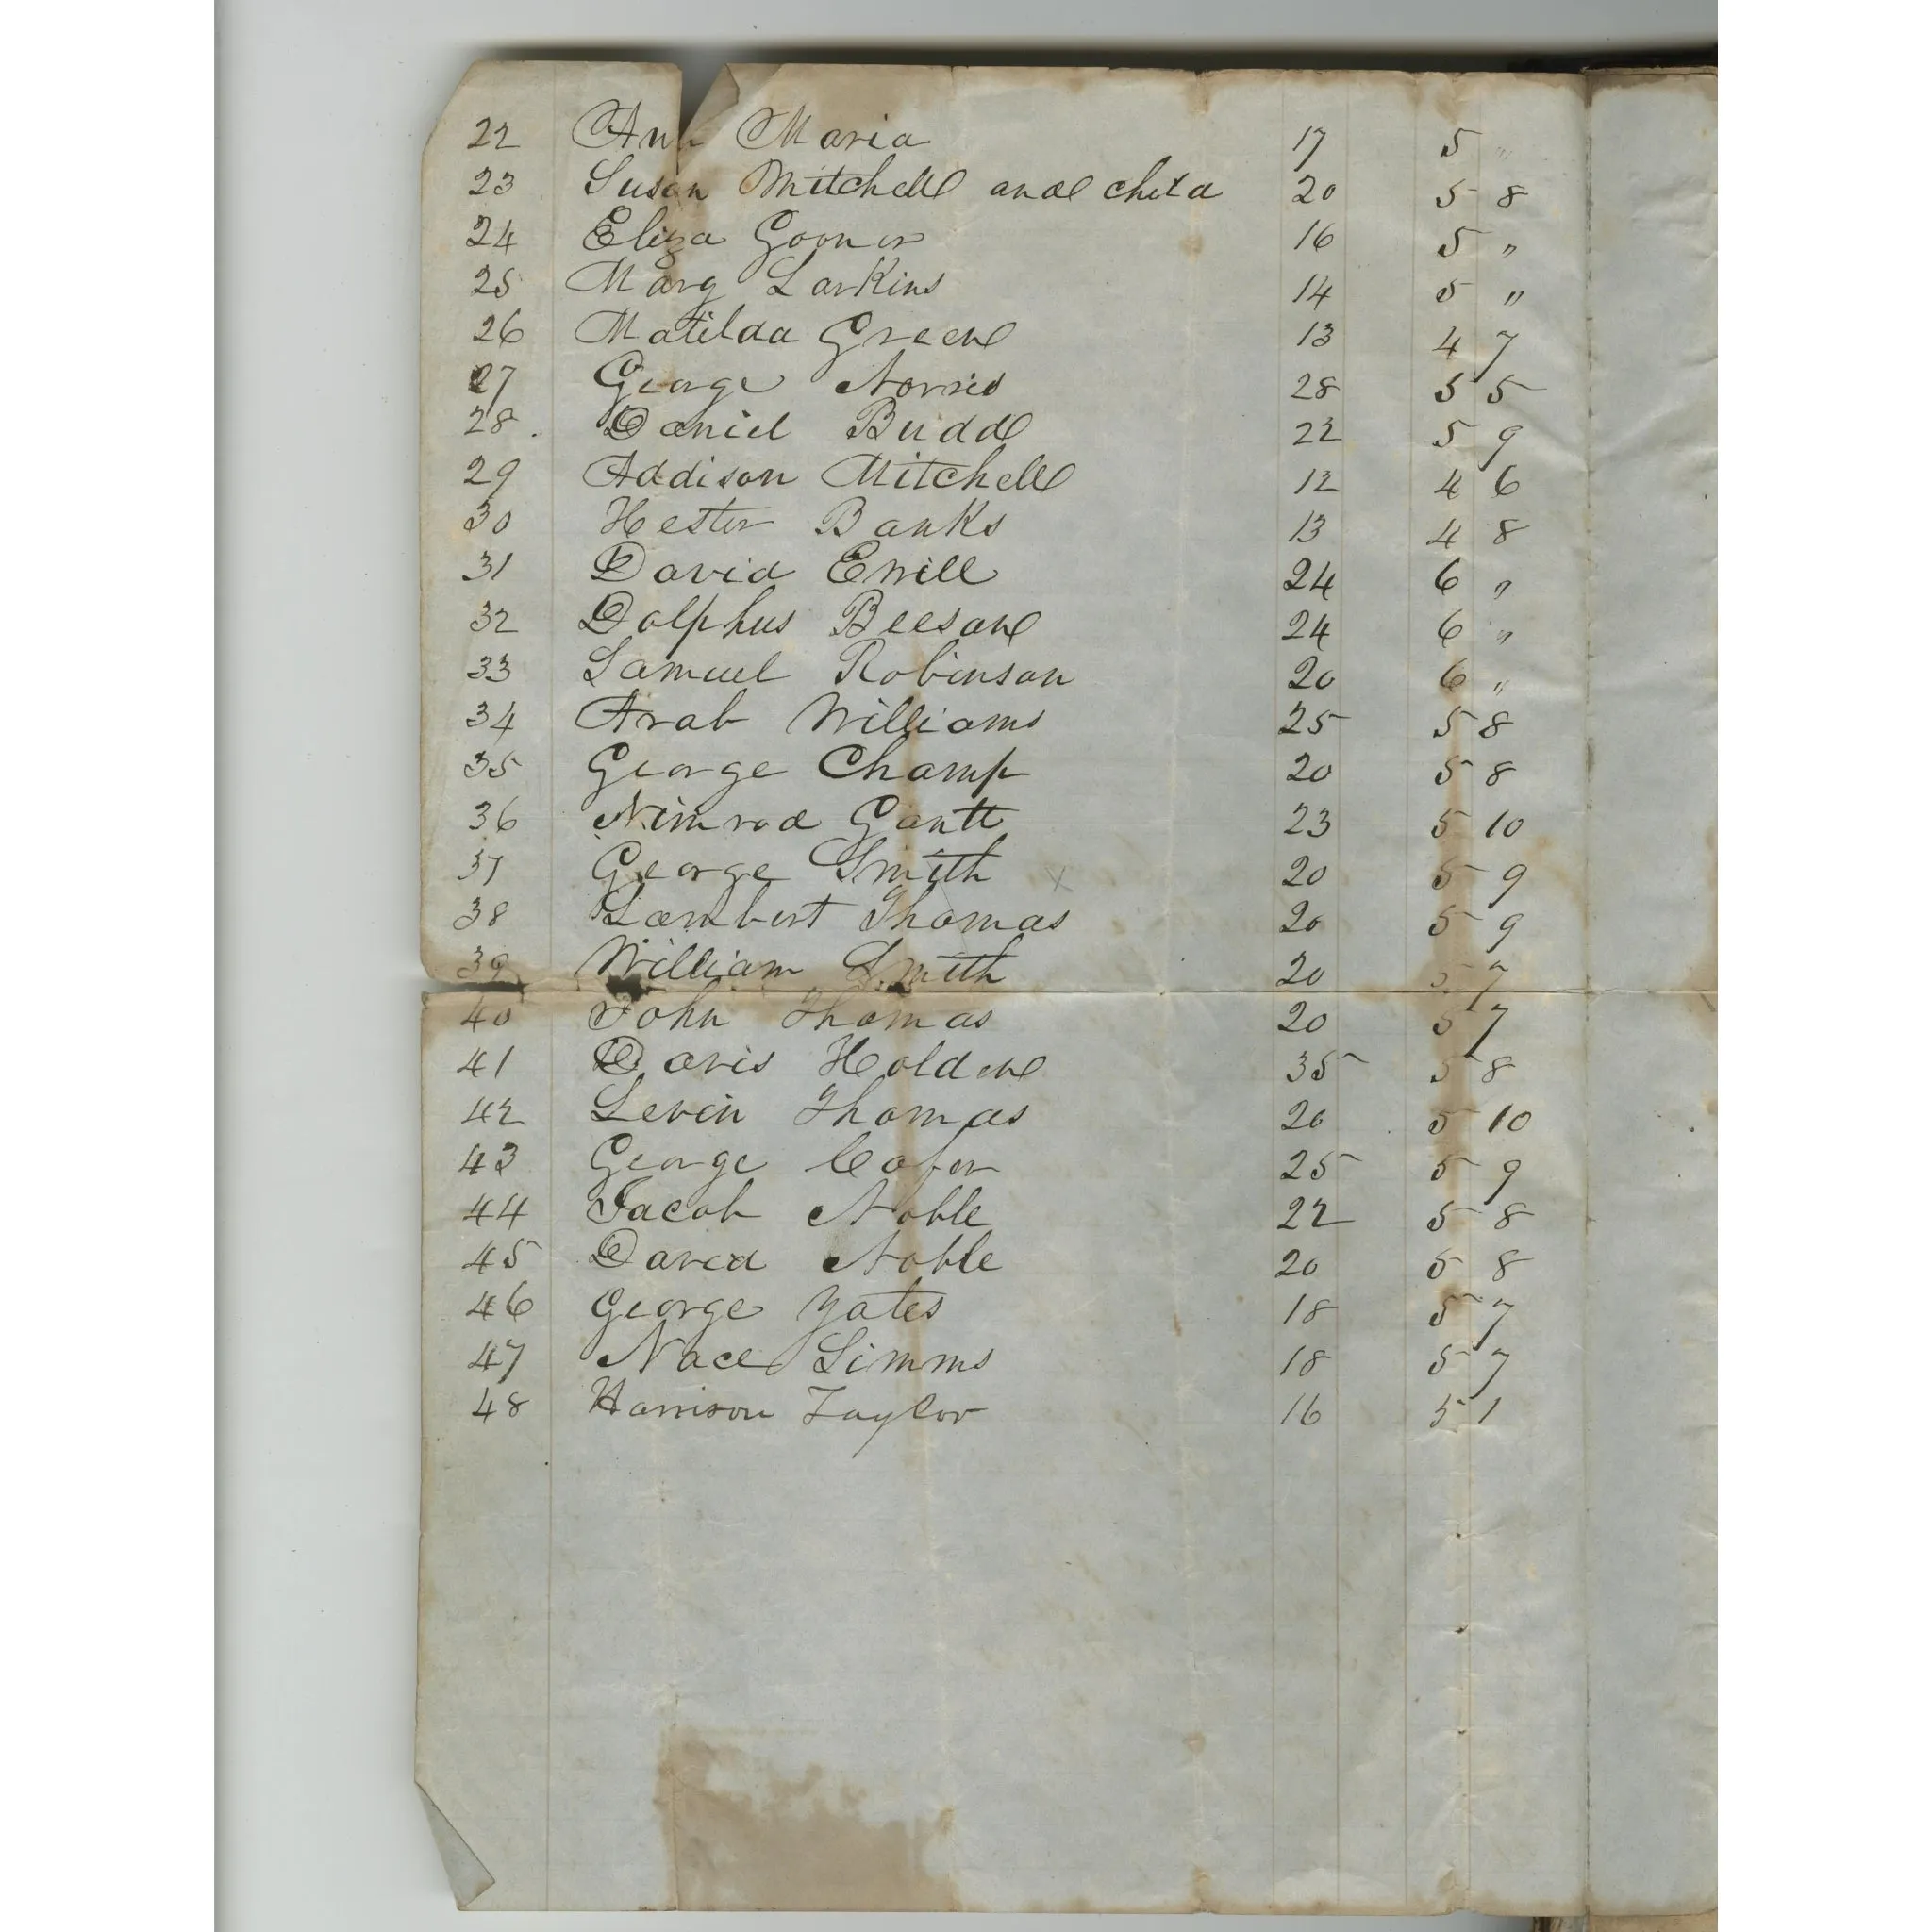 22 Ann Maria 17 5 "
23 Susan Mitchell and child 20 5 8
24 Eliza 16 5 "
25 Marg Larkins 14 5 "
26 Matilda Green 13 4 7
27 George Norris 28 5 5
28. Daniel Budd 22 5 9
29 Addison Mitchell 12 4 6
30 Hester Banks 13 4 8
31 David 24 6 "
32 Dolphus Beeson 24 6 "
33 Samuel Robinson 20 6 "
34 Arab Williams 25 5 8
35 George Champ 20 5 8
36 Nimrod Gantt 23 5 10
37 George Smith 20 5 9
38 Lambert Thomas 20 5 9
39 William Smith 20 5 7
40 John Thomas 20 5 7
41 Davis Holden 35 5 8
42 Levin Thomas 20 5 10
43 George 25 5 9
44 Jacob Noble 22 5 8
45 David Noble 20 5 8
46 George Yates 18 5 7
47 Nace Simms 18 5 7
48 Harrison Taylor 16 5 1